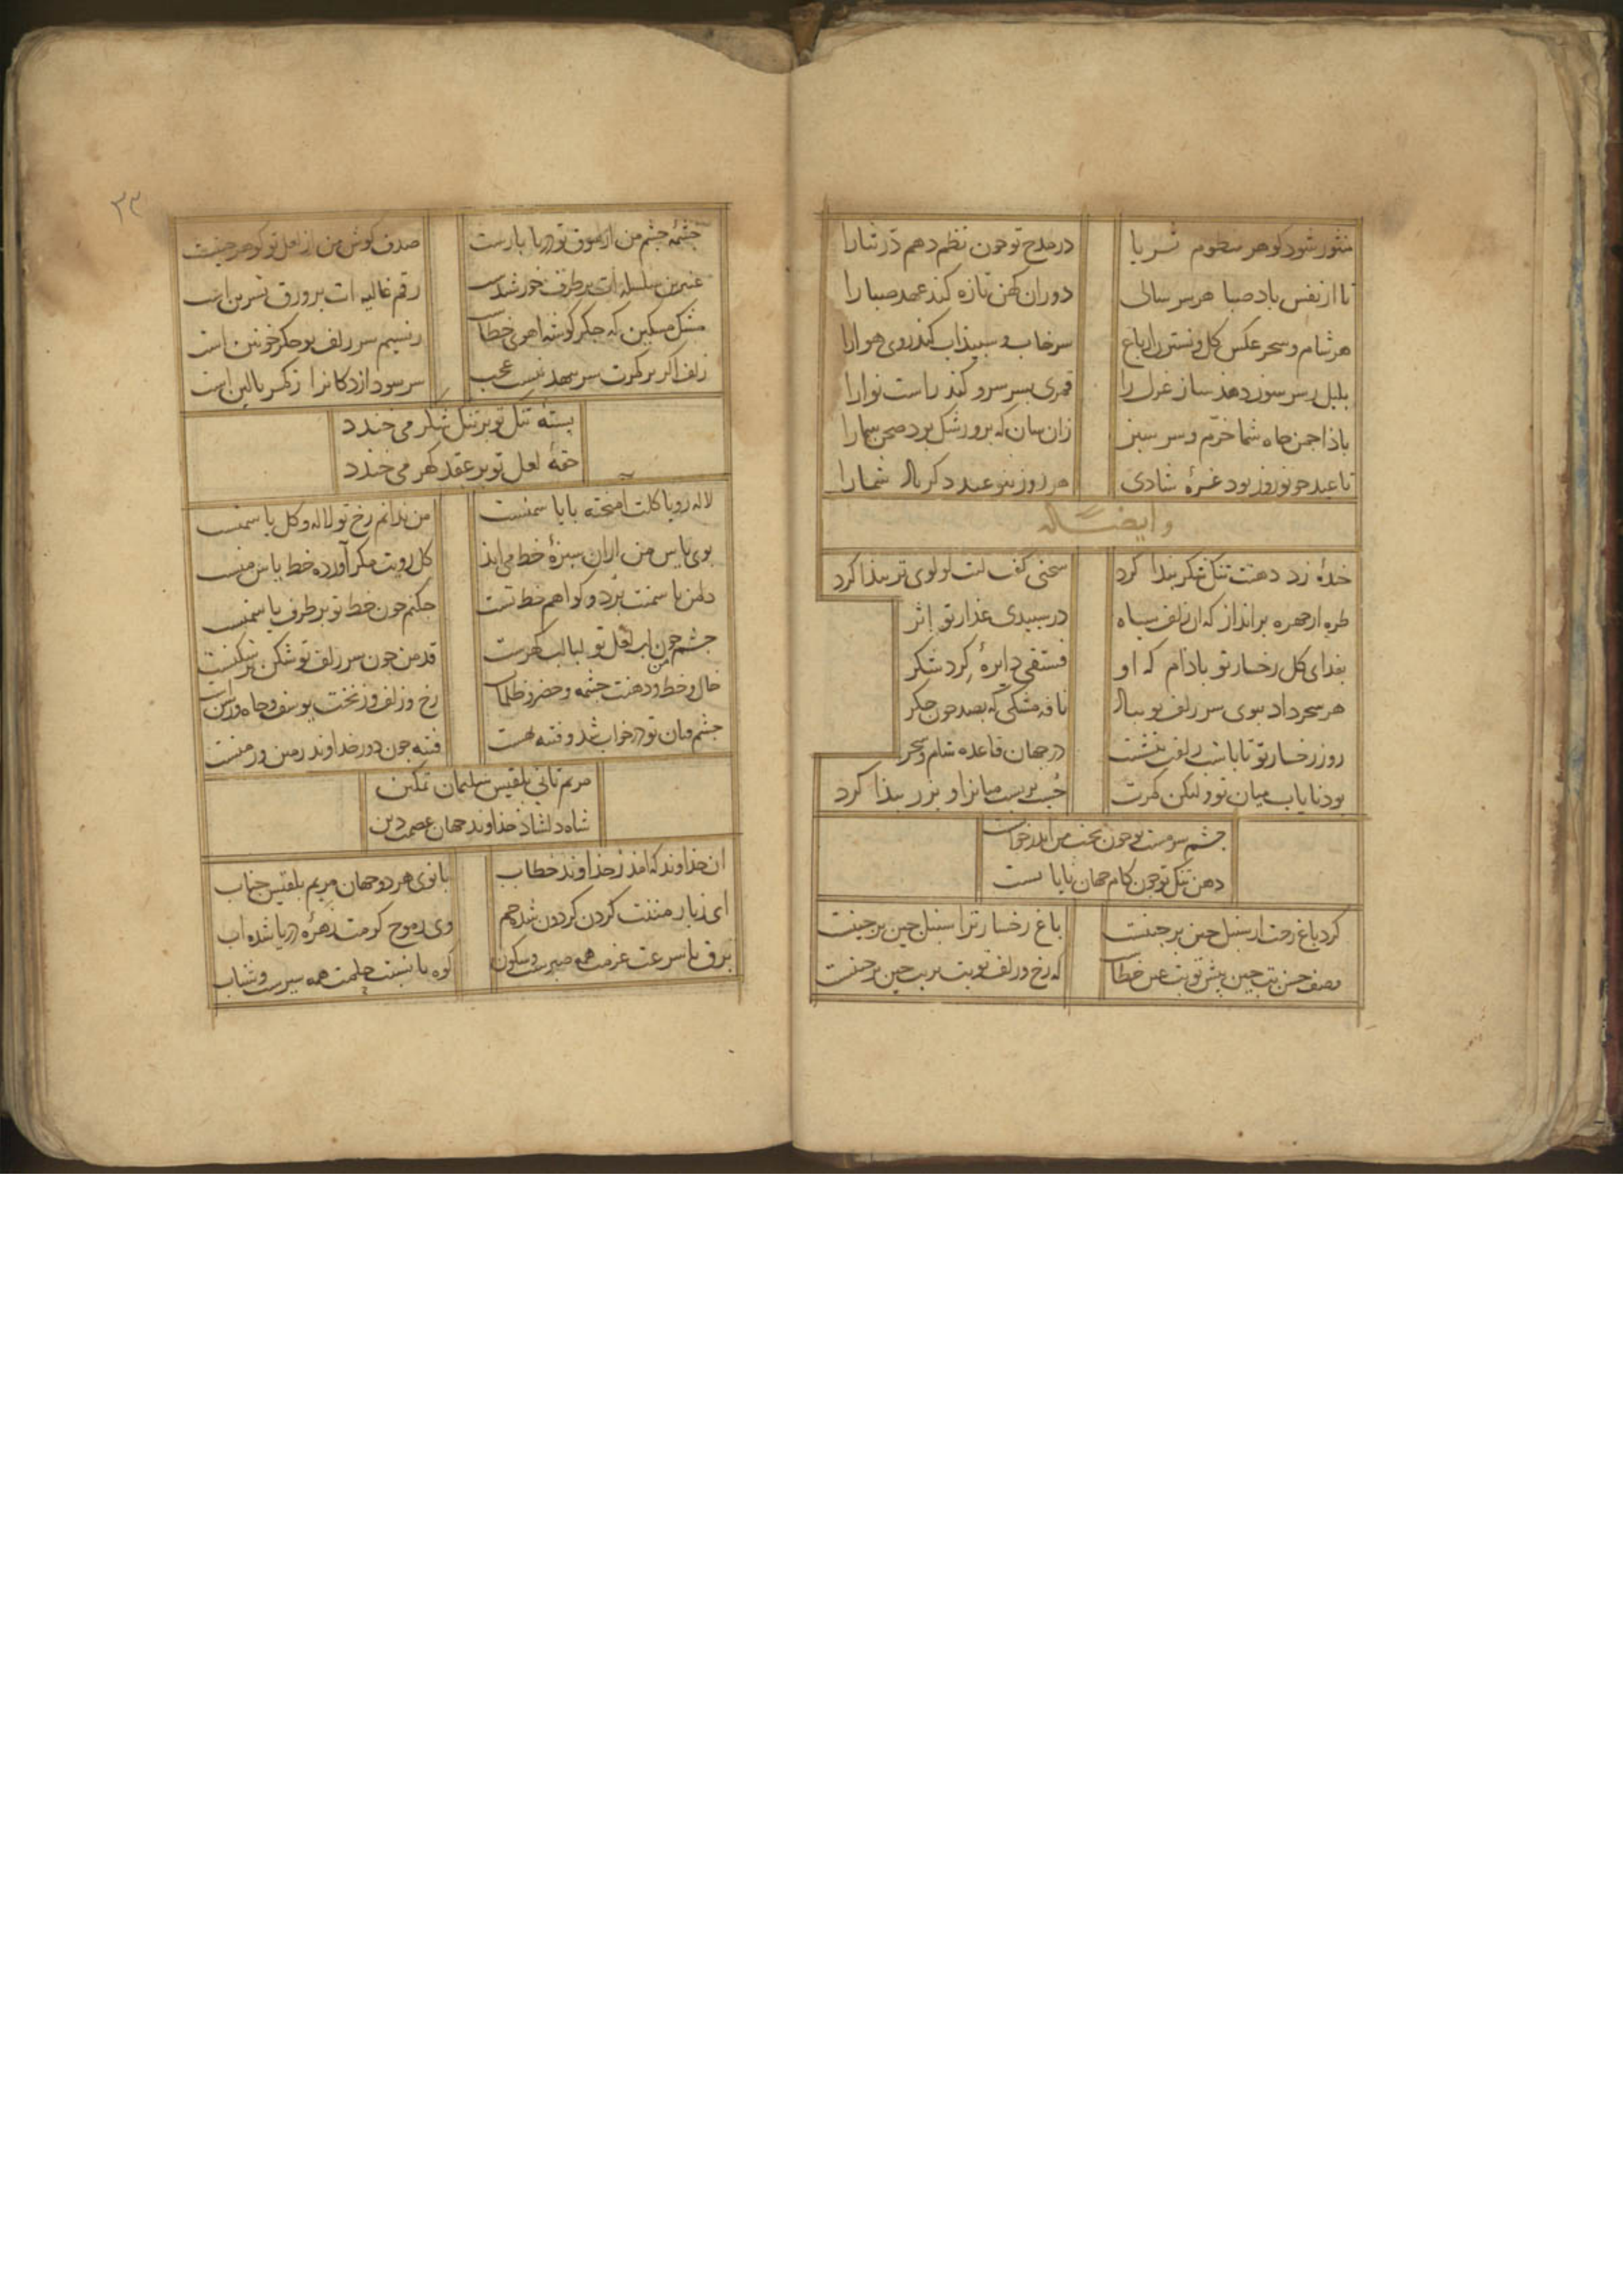 منثور شود گوهر منظوم ثریا در مدح تو چون نظم دهم در ثنا را
تا از نفس باد صبا هر سر سالی دوران کهن تازه کند عهد صبا را
هر شام و سحر عکس کل و نسترن باغ سرخاب و سبیذاب کند روی هوا را
بلبل ز سر سوز دهذ ساز غزل را قمری بسر سرو کند راست نوا را
باذا چمن جاه شما خرم و سرسبز زان سان که برد رشک برو صحن سما را
تا عید جو نوروز بود غرهٔ شادی هر روز ز نو عید دکر باذ شما را
و ایضا له
خندهٔ زد دهنت تنک شکر بیذا کرد سخنی کفت لبت لولوی تر بیذا کرد
طره از جهره برانداز که ان زلف سیاه در سبیدی عذار تو اثر
بفدای کل رخسار تو باذام که او فستقی دایرهٔ کرد شکر
هر سحر داد ببوی سر زلف تو ببال نافه مشکی که بصد خون جکر
روز رخسار تو تا با شب زلفت ننشست در جهان قاعده شام و سحر
بود نایاب میان تو ولیکن کمرت جست بربست میانرا و بزر بیذا کرد
جشم سرمست تو جون بخت من اندر خوابست
دهن تنک تو جون کام جهان نایابست
کرد باغ رخت از سنبل جین برجینست باغ رخسار ترا سنبل جین برجینست
وصف حسن بت جین پیش تو بت عین خطاست که رخ و زلف تو بت بر بت جین برجینست
۲۳
جشمهٔ جشم من از شوق تو دریا بارست صدف کوش من از لعل تو کوهرجینست
عنبرین سلسله ات بر طرف خورشیدست رقم غالیه ات بر ورق نسرین است
مشک مسکین که جکر کوشه اهوی خطاست ز نسیم سر زلف تو جکر خونین است
زلف اکر بر کمرت سر بنهد نیست عجب سر سودازدکانرا ز کمر بالین است
بستهٔ تنک تو بر تنک شکر می خندد
حقهٔ لعل تو بر عقد کهر می خندد
لاله رویا کلت آمیخته با یاسمنست من ندانم رخ تو لاله و کل یا سمنست
بوی یاس من ازان سبزهٔ خط می ایذ کل رویت مکر آورده خط یاس منست
دل من یاسمنت برد و کواهم خط تست جکنم جون خط تو بر طرف یاسمنست
جشم من جون لب لعل تو لبالب کهرست قد من جون سر زلف تو شکن بر شکنست
خال و خط و دهنت جشمه و خضر و ظلمات رخ و زلف و زنخت یوسف و جاه و رسنست
جشم فتان تو در خواب شد و فتنه نخست فتنه جون دور خداوند زمین و زمنست
مریم ثانی بلقیس سلیمان تمکین
شاه دلشاذ خداوند جهان عصمت دین
ان خداوند که امذ ز خداوند خطاب بانوی هر دو جهان مریم بلقیس جناب
ای ز بار مننت کردن کردون شده خم وی ز موج کرمت زهرهٔ دریا شده اب
برق با سرعت عزمت همه صبرست و سکون کوه با نسبت حلمت همه سیرست و شتاب